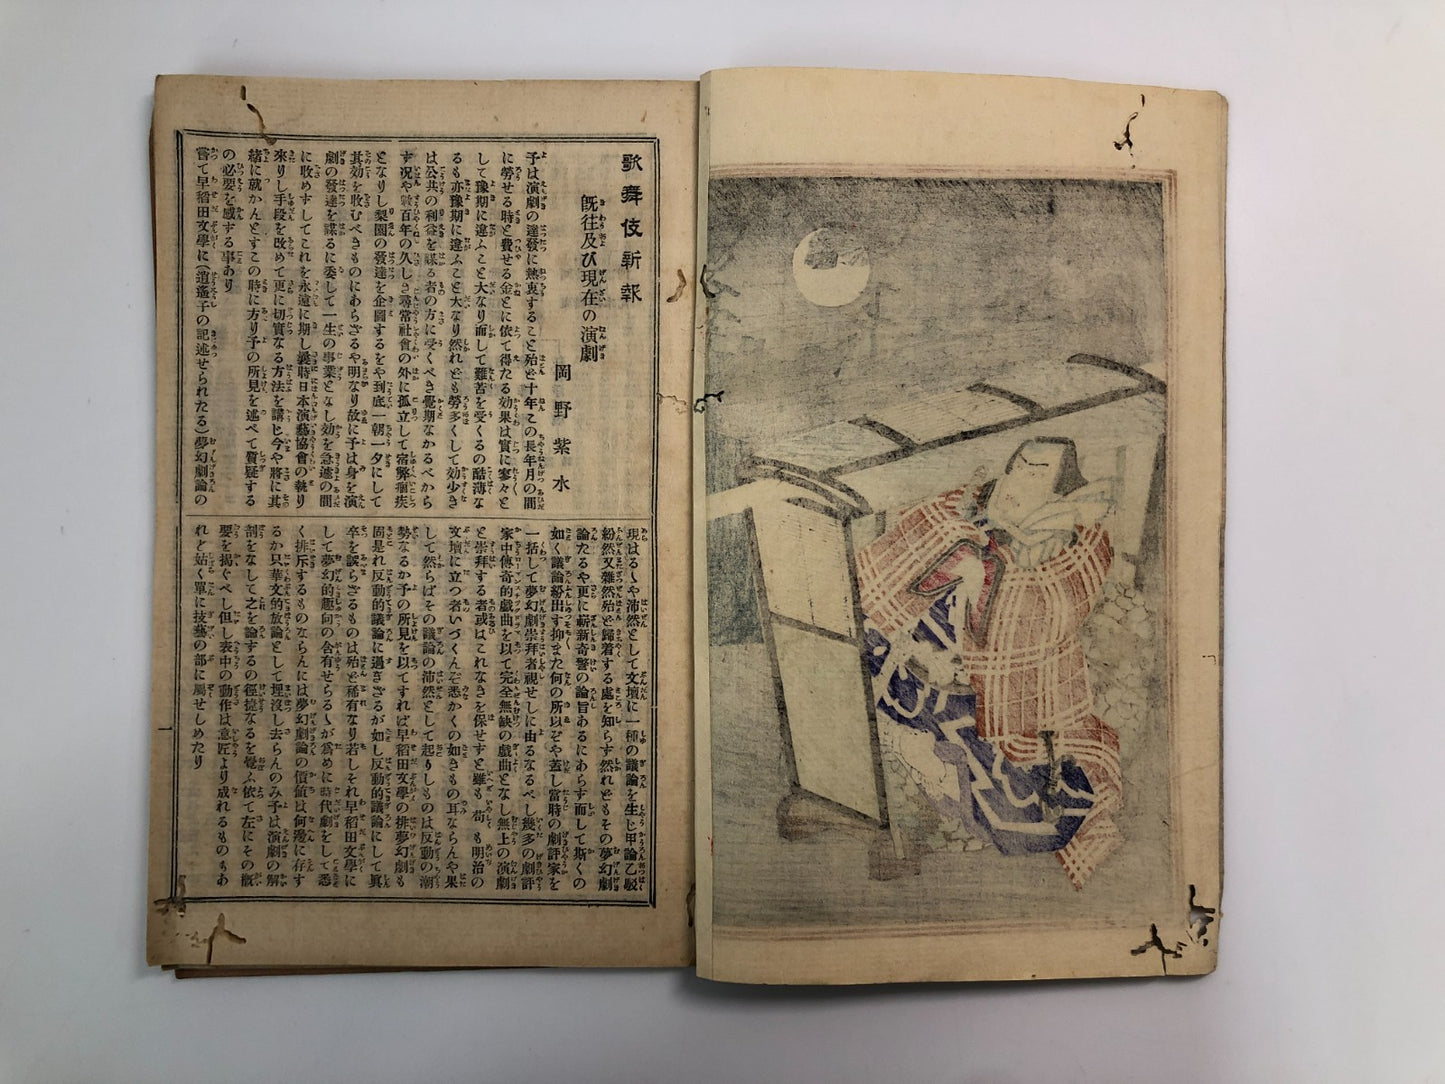 歌舞伎新報
既往及び現在の演劇
岡野紫水
予は演劇の達發に熱衷すること殆ど十年この長年月の間
に勞せる時と費せる金とに依て得たる効果は實に寥々と
して豫期に違ふこと大なり而して難苦を受くるの酷薄な
るも亦豫期に違ふこと大なり然れども勞多くして効少き
は公共の利益を謀る者の方に受くべき覺期なかるべから
ず况や數百年の久しき尋常社會の外に孤立して宿弊痼疾
となりし梨園の發達を企圖するをや到底一朝一夕にして
其効を收むべきものにあらざるや明なり故に予は身を演
劇の發達を謀るに委して一生の事業となし効を急遽の間
に收めずしてこれを永遠に期し曩時日本演藝協會の執り
來りし手段を改めて更に切實なる方法を講じ今や將に其
緒に就かんとすこの時に方り予の所見を述べて質疑する
の必要を感ずる事あり
嘗て早稻田文學に(逍遙子の記述せられたる)夢幻劇論の
現はるゝや沛然として文壇に一種の議論を生じ甲論乙駁
紛然又雜然殆ど歸着する處を知らず然れどもその夢幻劇
論たるや更に嶄新奇警の論旨あるにあらず而して斯くの
如く議論紛出す抑また何の所以ぞや蓋し當時の劇評家を
一括して夢幻劇崇拜者視せしに由るなるべし幾多の劇評
家中傳奇的戲曲を以て完全無缺の戲曲となし無上の演劇
と崇拜する者或はこれなきを保せずと雖も苟も明治の
文壇に立つ者いづくんぞ悉かくの如きもの耳ならんや果
して然らばその議論の沛然として起りしものは反動の潮
勢なるか予の所見を以てすれば早稻田文學の排夢幻劇も
固是れ反動的議論に過ぎざるが如し反動的議論にして眞
卒を誤らざるものは殆ど稀有なり若しそれ早稻田文學に
して夢幻的趣向の含有せらるゝが爲めに時代劇をして悉
く排斥するものならんには夢幻劇論の價値は何邊に存す
るか只華文的放論として埋沒し去らんのみ予は演劇の解
剖をなして之を論ずるの徑捷なるを覺ふ依て左にその概
要を揭ぐべし但し表中の動作は意匠より成れるものもあ
れど姑く單に技藝の部に屬せしめたり
一